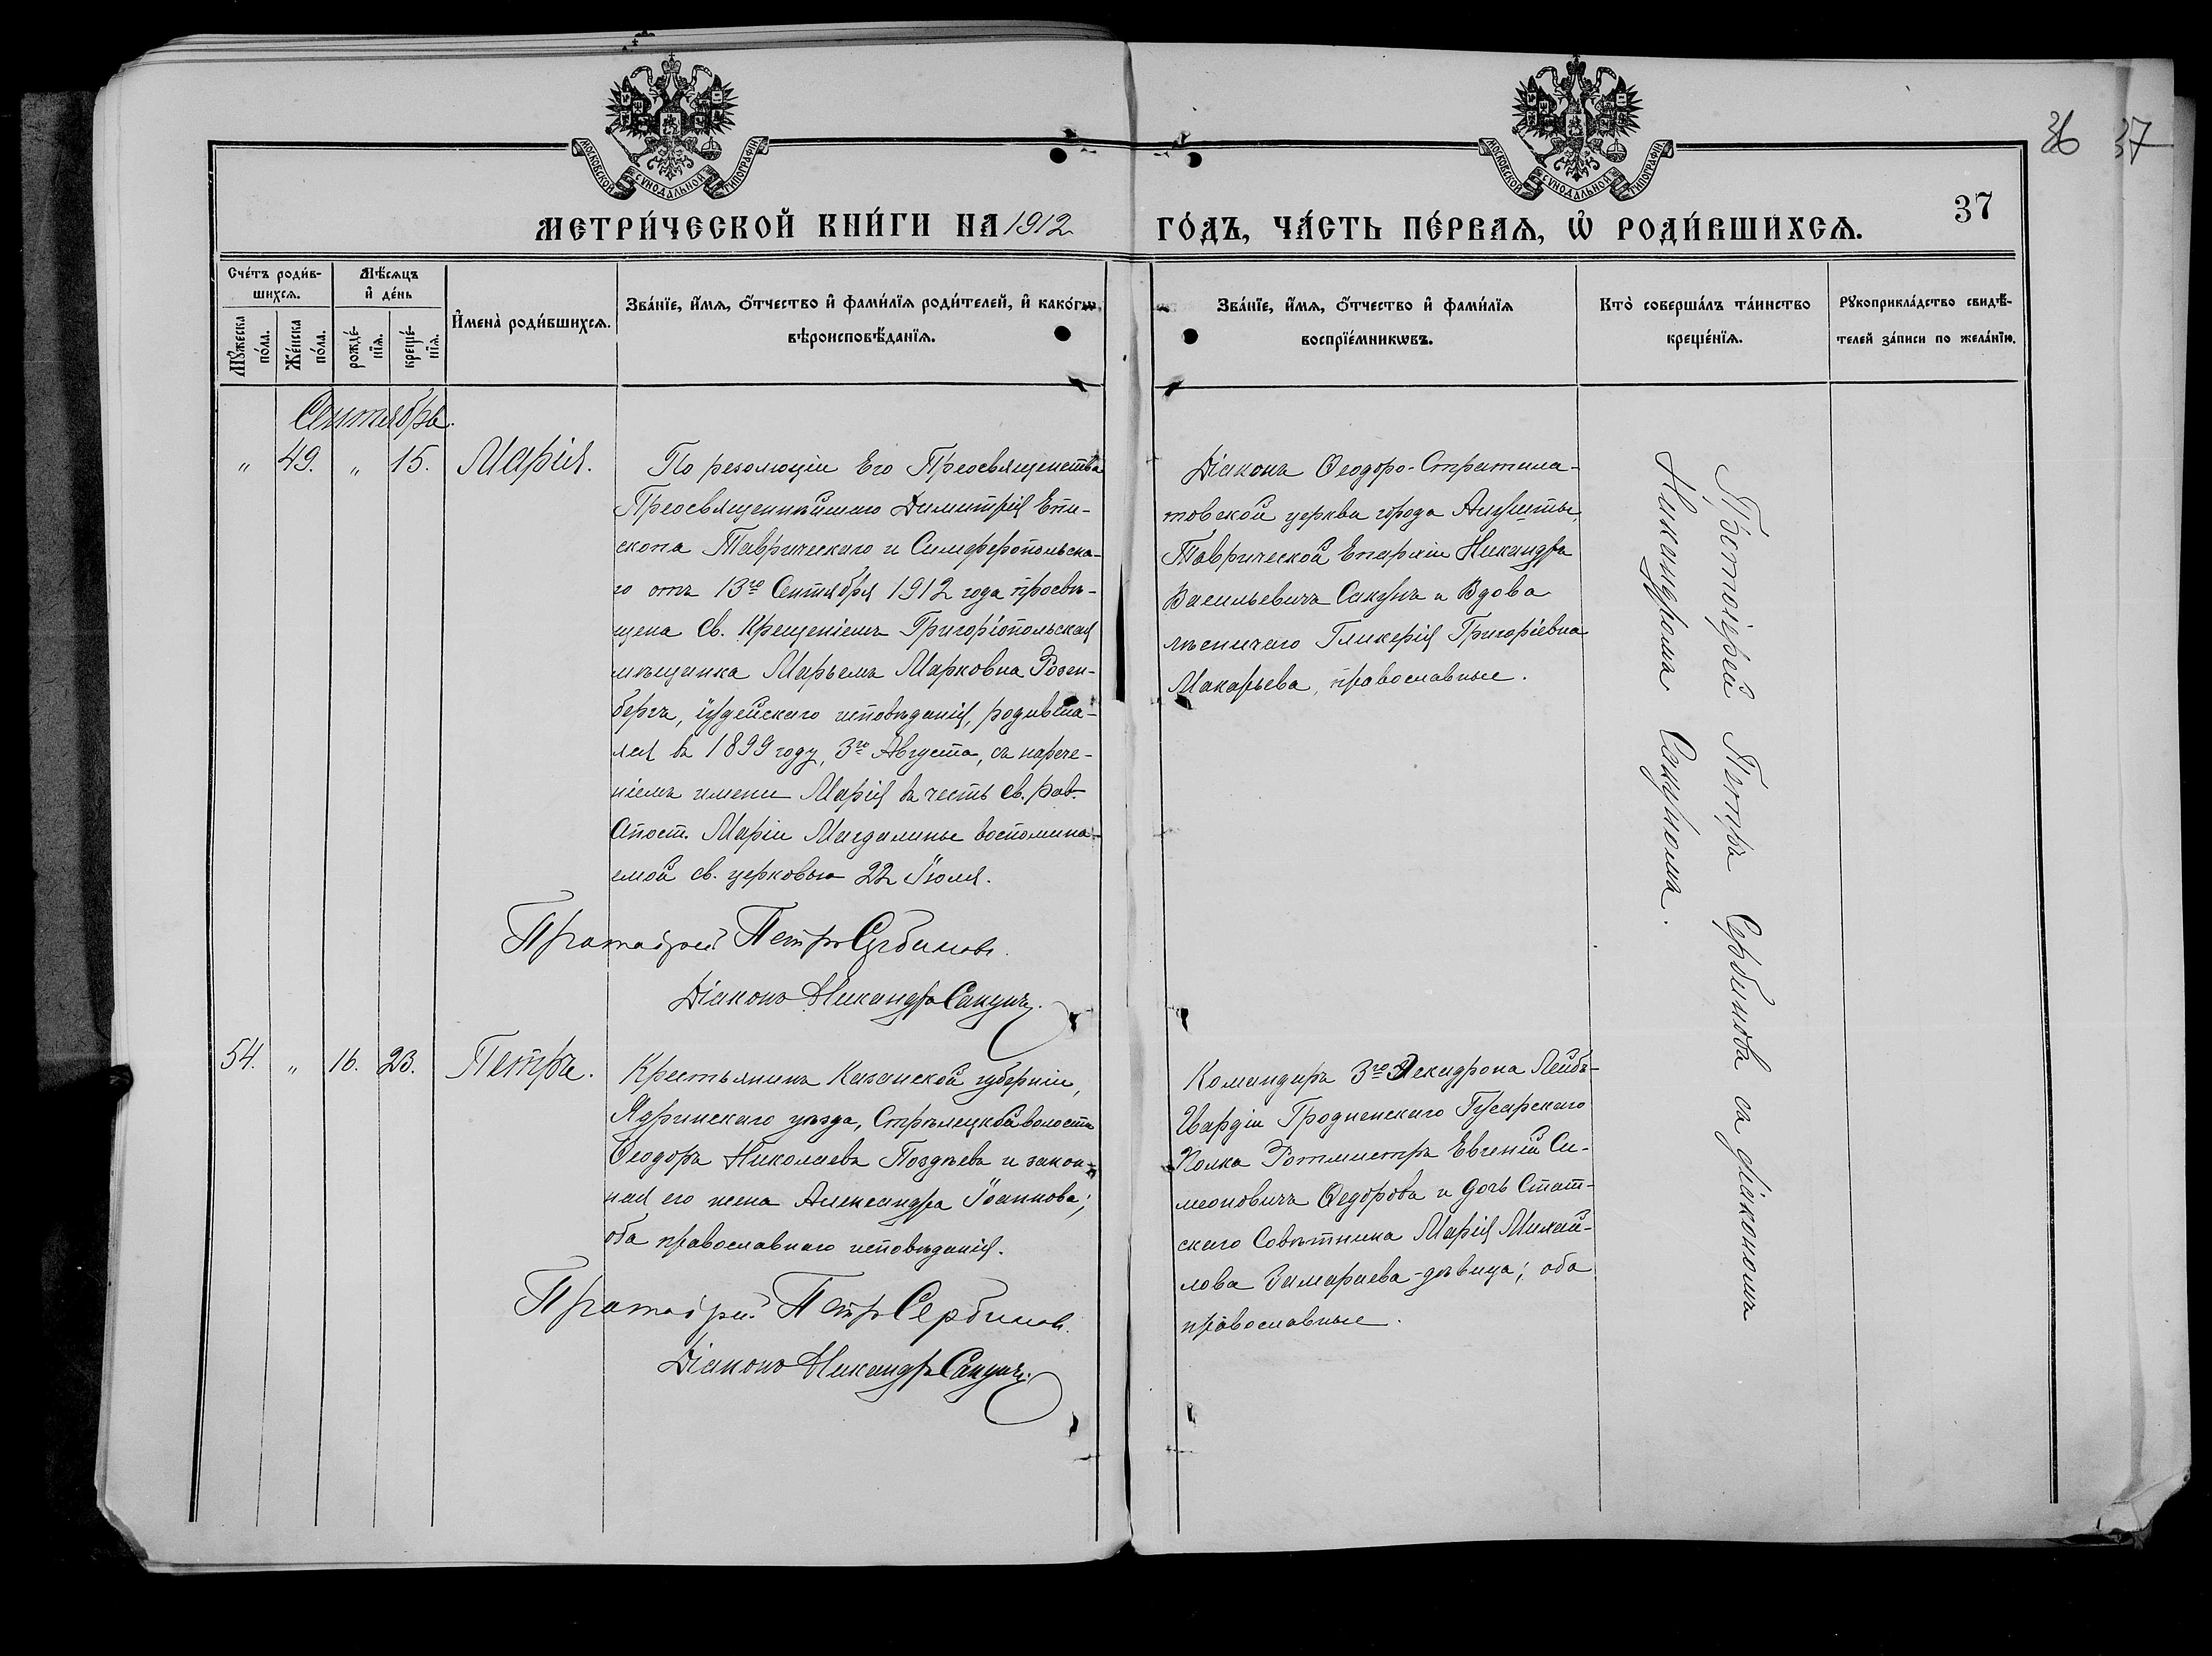 МОСКОВСКОЙ СѴНОДАЛЬНОЙ ТИПОГРАФІИ
МОСКОВСКОЙ СѴНОДАЛЬНОЙ ТИПОГРАФІИ
36 37
37
МЕТРИ́ЧЕСКОЙ КНИ́ГИ НА 1912 ГО́ДЪ, ЧА́СТЬ ПЕ́РВАѦ, Ѡ҆ РОДИ́ВШИХСѦ.
Сче́тъ роди́в-
шихсѧ.
Мѣ́сѧцъ
и҆ де́нь
Мꙋ́жеска
по́ла.
Же́нска
по́ла.
рожде́-
нїѧ.
креще́-
нїѧ.
И҆мена̀ роди́вшихсѧ.
Зва́нїе, и҆́мѧ, ѻ҆́тчество и҆ фами́лїѧ роди́телей, и҆ како́гѡ
вѣроисповѣ́данїѧ.
Зва́нїе, и҆́мѧ, ѻ҆́тчество и҆ фами́лїѧ
воспрїе́мникѡвъ.
Кто̀ соверша́лъ та́инство
креще́нїѧ.
Рꙋкоприкла́дство свидѣ́-
телей за́писи по жела́нїю.
Сентябрь.
" 49. " 15. Марія.
По резолюціи Его Преосвященства
Преосвященнѣйшаго Димитрія Епи-
скопа Таврическаго и Симферопольска-
го отъ 13го Сентября 1912 года просвѣ-
щена Св. Крещеніемъ Григоріопольская
мѣщанка Марьемъ Марковна Розен-
бергъ, іудейскаго исповѣданія, родивша-
яся въ 1899 году, 3го Августа, съ нарече-
ніемъ имени Марія въ честь св. рав.
Апост. Маріи Магдалины воспомина-
емой св. церковью 22 Іюля.
Протоіерей Петръ Сербиновъ.
Діаконъ Никандръ Сакунъ.
Діаконъ Ѳеодоро-Стратила-
товской церкви города Алушты,
Таврической Епархіи Никандръ
Васильевичъ Сакунъ и Вдова
лѣсничаго Гликерія Григоріевна
Макарьева, православные.
Протоіерей Петръ Сербиновъ съ діакономъ
Никандромъ Сакуномъ.
54. " 16. 23. Петръ.
Крестьянинъ Казанской губерніи,
Ядринскаго уѣзда, Стрѣлецкой волости
Ѳеодоръ Николаевъ Поздѣевъ и закон-
ная его жена Александра Іоаннова;
оба православнаго исповѣданія.
Протоіерей Петръ Сербиновъ.
Діаконъ Никандръ Сакунъ.
Командиръ 3го Эскадрона Лейбъ-
Гвардіи Гродненскаго Гусарскаго
Полка Ротмистръ Евгеній Си-
меоновичъ Ѳедоровъ и дочь Стат-
скаго Совѣтника Марія Михай-
лова Замараева-дѣвица; оба
православные.